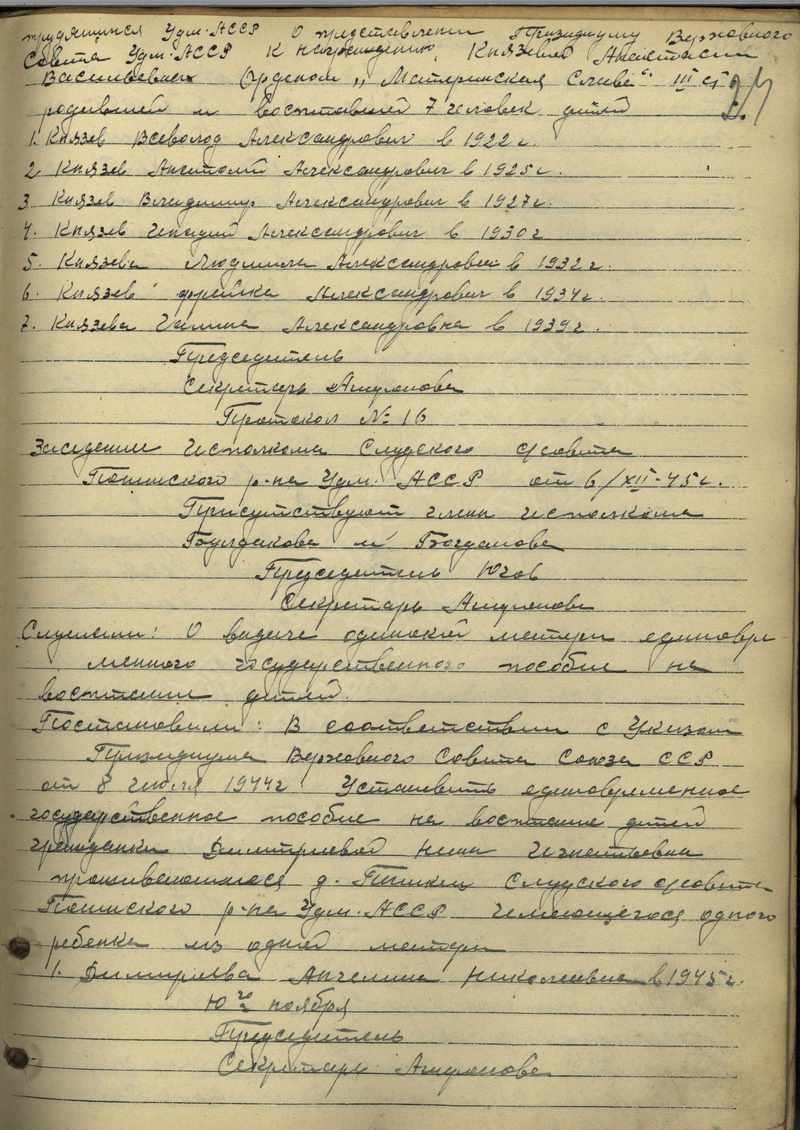 трудящихся Удм. АССР О представлении Президиуму Верховного
Совета Удм. АССР к награждению Князевой Анастасии
Васильевны Орденом „Материнская Слава“ III ст
родившей и воспитавшей 7 человек детей
1. Князев Всеволод Александрович в 1922 г.
2 Князев Анатолий Александрович в 1925 г.
3 Князев Владимир Александрович в 1927 г.
4. Князев Генадий Александрович в 1930 г
5. Князева Людмила Александровна в 1932 г.
6. Князев Александрович в 1934 г.
7. Князева Галина Александровна в 1939 г.
Председатель
Секретарь
Протокол № 16
Заседания Исполкома Слудского с/совета
р-на Удм. АССР от 6/XII-45 г.
Присутствуют члены исполкома
Булдакова и Богданова
Председатель Югов
Секретарь
Слушали: О выдаче одинокой матери единовре
менного государственного пособие на
воспитании детей.
Постановили: В соответствии с Указом
Президиума Верховного Совета Союза ССР
от 8 июля 1944 г Установить единовременное
государственное пособие на воспитание детей
гражданки Димитриевой Нина Игнатьевна
проживающегося д. Слудского с/совета
р-на Удм. АССР Имеющегося одного
ребенка из одной матери
1. Димитриева Ангелина Николаевна в 1945 г.
10 го ноября
Председатель
Секретарь